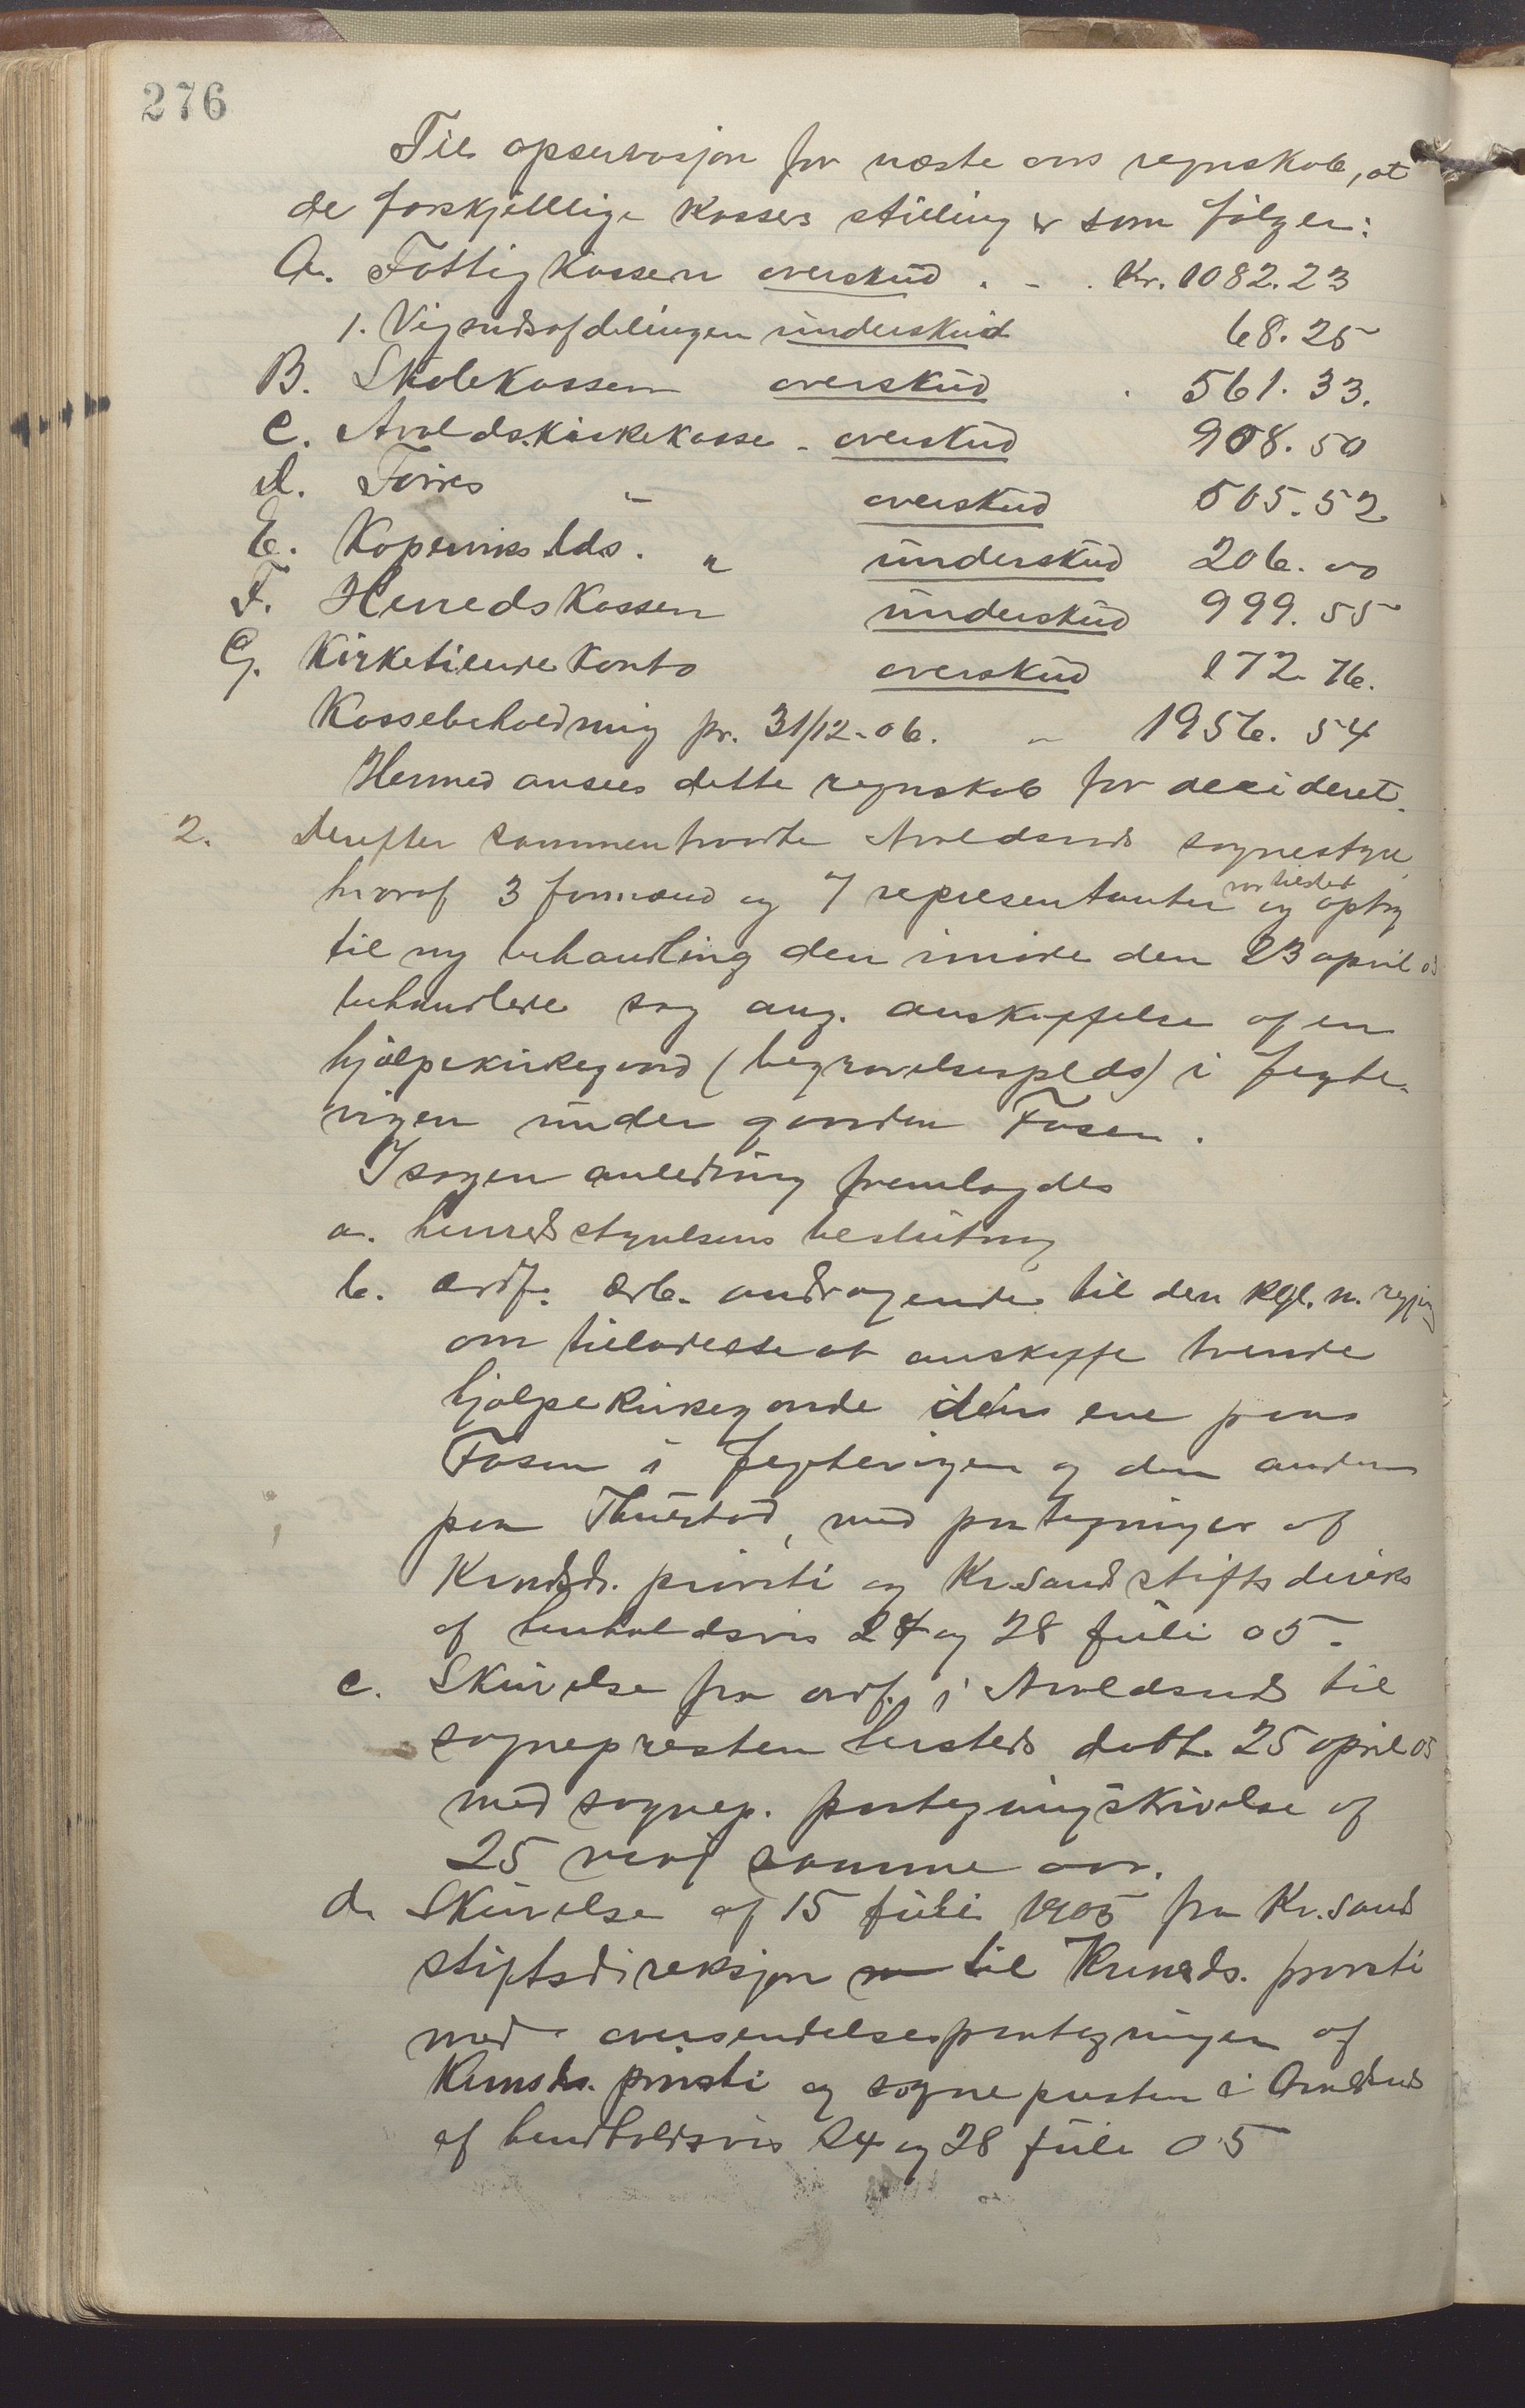 276
Til opservasjon for næste aars regnskab, at
de forskjelllige kassers stilling er som følger:
A. Fattigkassen overskud . - . Kr. 1082.23
1. Vigsndsafdelingen underskud 68.25
B. Skolekassen overskud . 561.33.
C. Avalds.kirkekasse - overskud 908.50
D. Torvės " overskud 505.52
E. Koperviks lds. " underskud 206.00
F. Herredskassen underskud 999.55
G. Kirketiende konto overskud 172.76.
Kassebeholdning pr. 31/12-06. - 1956.54
Hermed ansees dette regnskab for decideret.
2. Derefter sammentraadte Avaldsnes sognestyre,
hvoraf 3 formænd og 7 representanter var tilsted og optog
til ny behandling den innde den 23 april 05
behandlede sag ang. anskaffelse af en
hjælpekirkegaard (begravelsesplds) i Fegte-
vigen under gaarden Fosen.
I sagen anledning fremlagdes
a. herredstyrelsens beslutning
b. ordf. Erb. andragende til den kgl. n. regjng
om tilladelse at anskaffe tvende
hjælpekirkegaarde den ene paa
Fosen i Fegtevigen og den anden
paa Thuestad, med paategninger af
Karmds. provsti og Kr.sands stiftsdireks
af henholdsvis 24 og 28 juli 05.
c. Skrivelse fra ordf. i Avaldsnes til
sognepresten hersteds datt. 25 april 05
med sognep. paategningsskrivelse af
25 mai samme aar.
d. Skrivelse af 15 juli 1905 fra Kr.sand
stiftsdireksjon til Karmsds. provsti
med oversendelsespaategninger af
Karmsds. provsti og sognepresten i Avaldsnes
af henholdsvis 24 og 28 juli 05